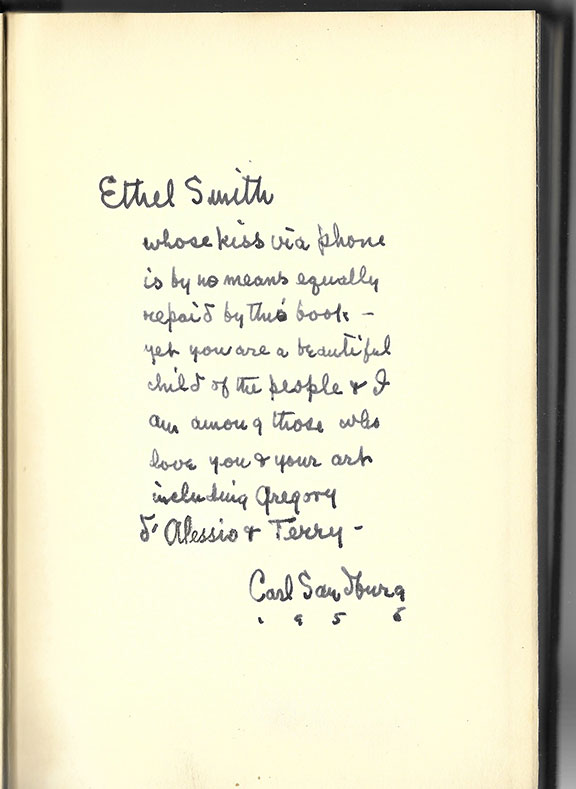 Ethel Smith
whose kiss via phone
is by no means equally
repaid by this book —
yet you are a beautiful
child of the people & I
am among those who
love you & your art
including Gregory
d'Alessio & Terry —
Carl Sandburg
1956